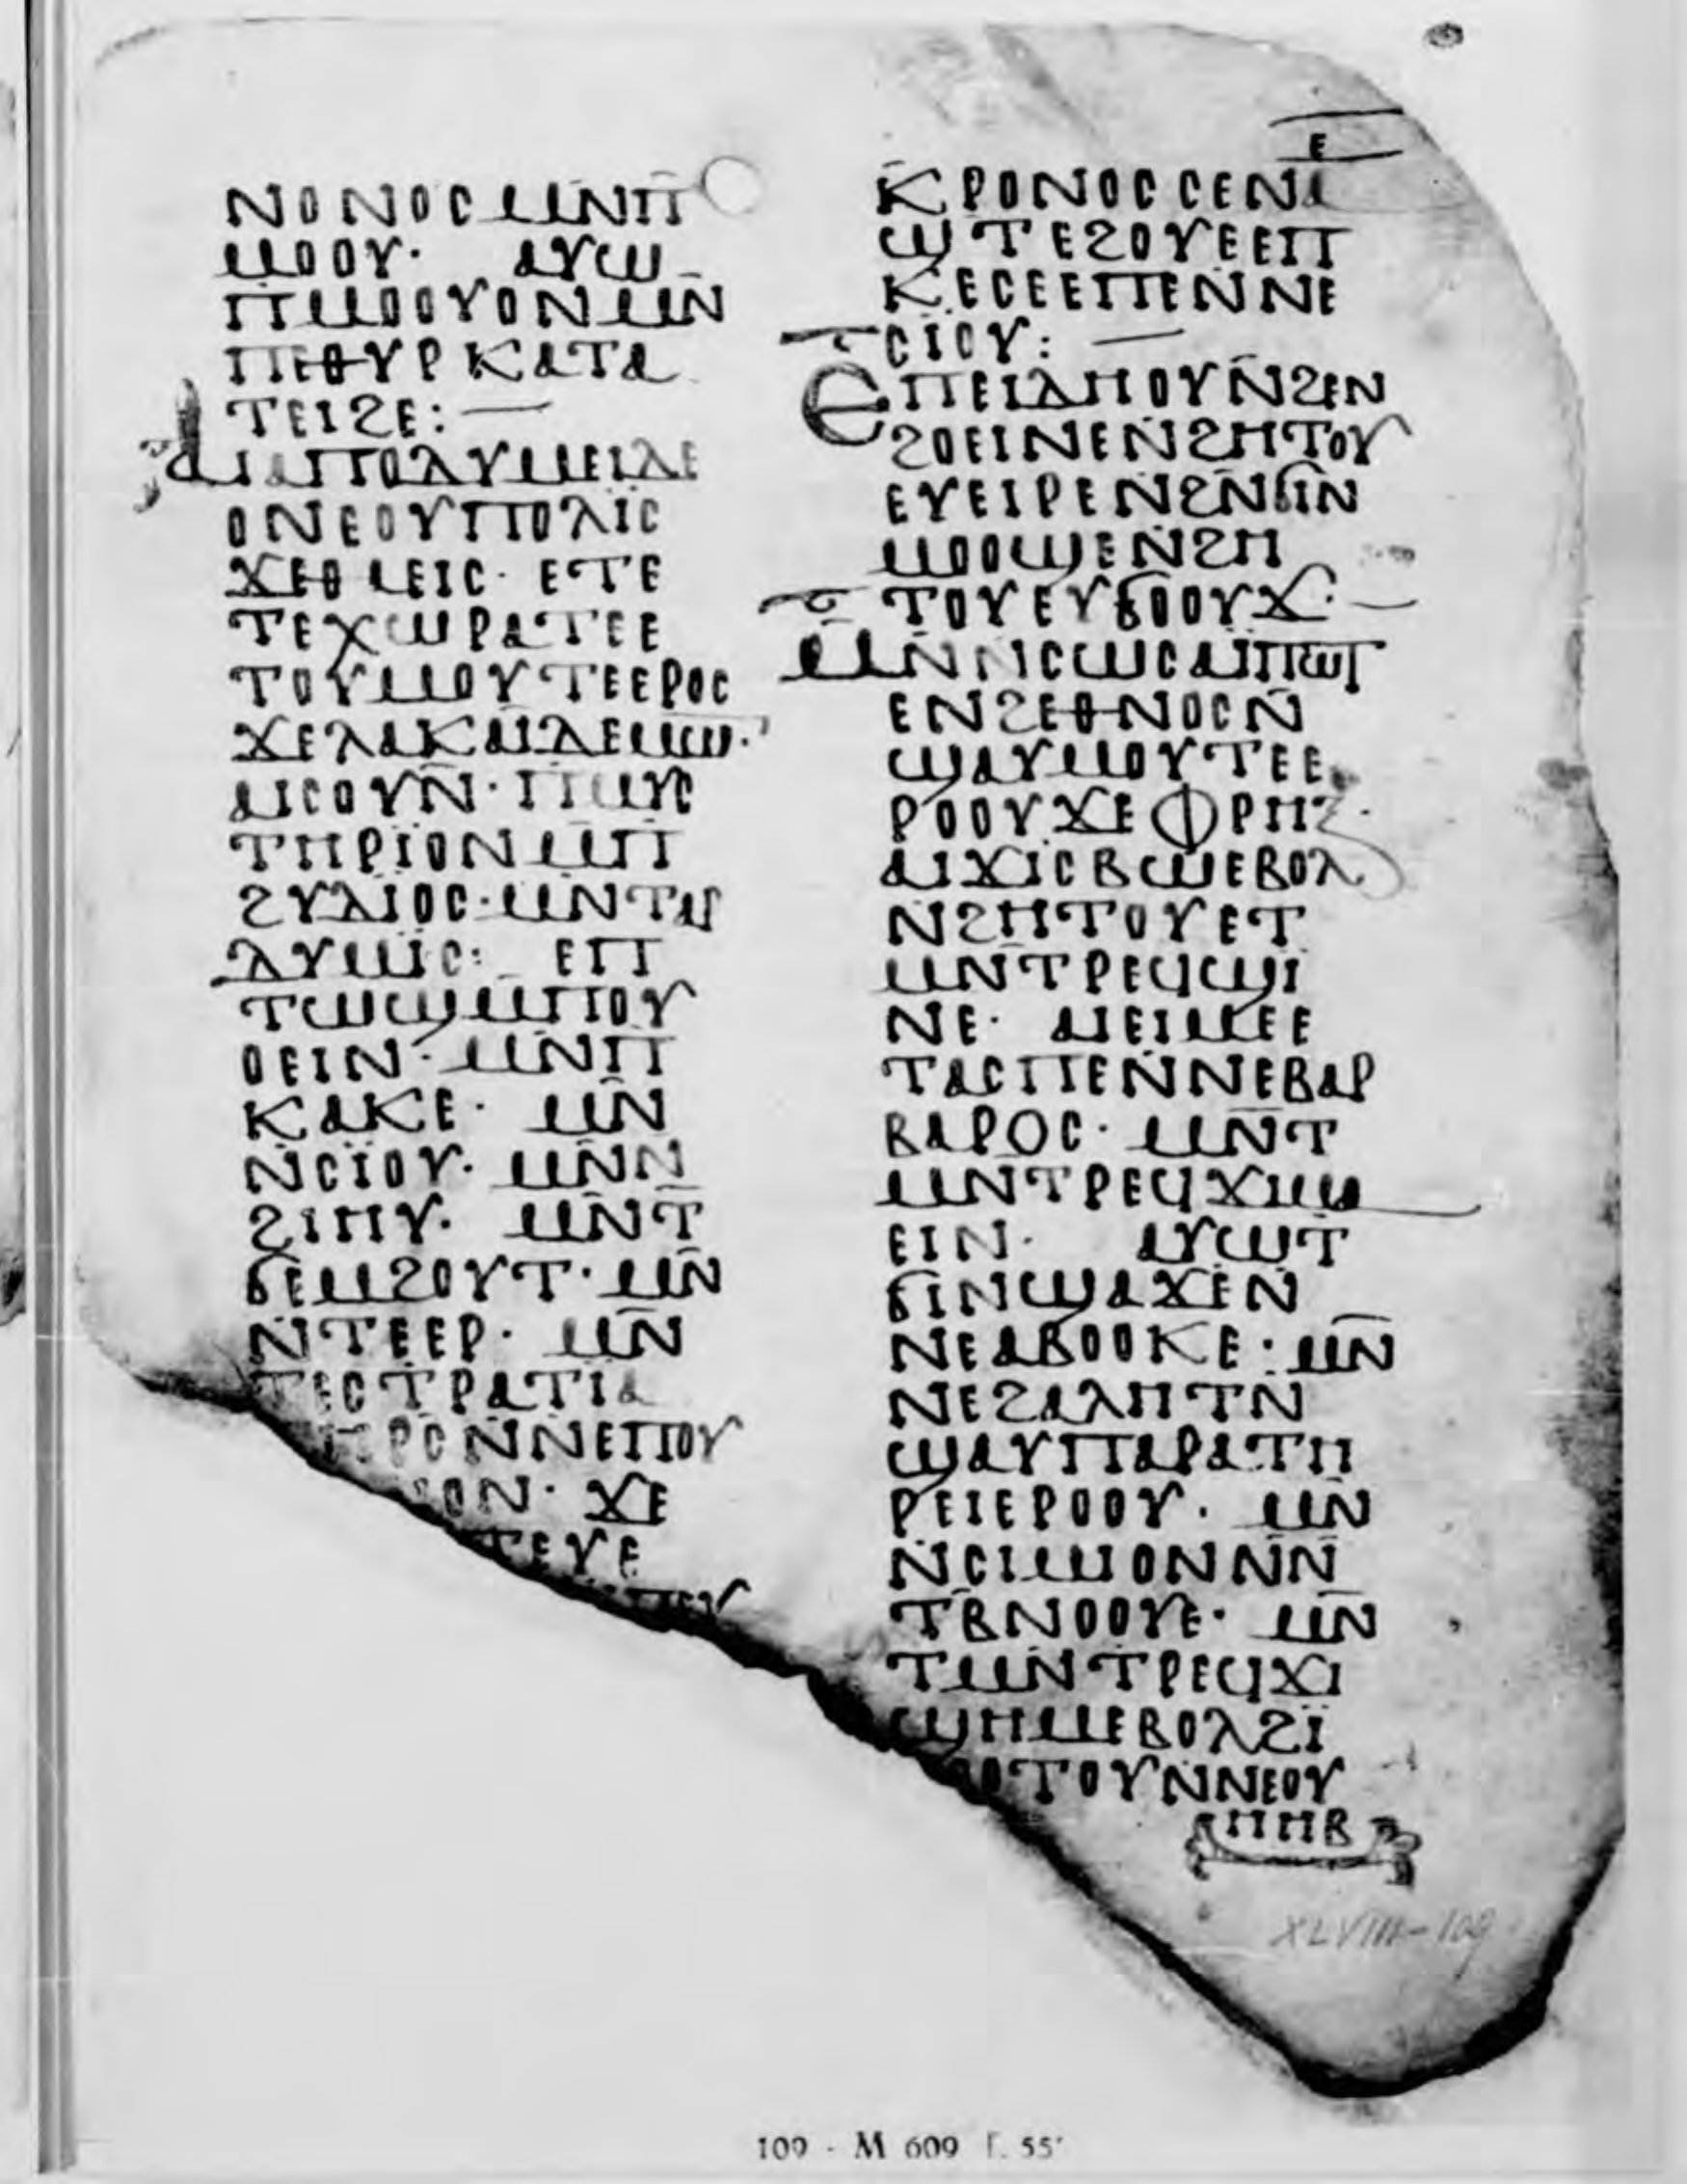 ⲉ
ⲛⲟⲛⲟⲥⲙⲛⲡ
ⲙⲟⲟⲩ· ⲁⲩⲱ
ⲡⲙⲟⲟⲩⲟⲛⲙⲛ
ⲡⲉⲑⲩⲣⲕⲁⲧⲁ
ⲧⲉⲓϩⲉ:—
ⲟⲛⲉⲟⲩⲡⲟⲗⲓⲥ
ϫⲉⲑⲙⲉⲓⲥ· ⲉⲧⲉ
ⲧⲉⲭⲱⲣⲁⲧⲉⲉ
ⲧⲟⲩⲙⲟⲩⲧⲉⲉⲣⲟⲥ
ϫⲉⲗⲁⲕⲁⲓⲇⲉⲙⲱ·
ⲁⲓⲥⲟⲩⲛ̄·ⲡⲙⲩⲥ
ⲧⲏⲣⲓⲟⲛⲙⲡ
ϩⲩⲗⲓⲟⲥ·ⲙⲛⲧⲁⲓ
ⲗⲩⲙⲓⲥ: ⲉⲡ
ⲧⲱϣⲙⲡⲟⲩ
ⲟⲉⲓⲛ·ⲙⲛⲡ
ⲕⲁⲕⲉ· ⲙⲛ̄
ⲛ̄ⲥⲓⲟⲩ· ⲙⲛⲛ
ϩⲓⲏⲩ· ⲙⲛⲧ
ϭⲉⲙϩⲟⲩⲧ·ⲙⲛ̄
ⲛ̄ⲧⲉⲉⲣ· ⲙⲛ̄
ⲧⲉⲥⲧⲣⲁⲧⲓⲁ
ⲣⲟⲛⲛⲉⲡⲟⲩ
ⲟⲛ· ϫⲉ
ⲧⲉⲩⲉ
ⲕⲣⲟⲛⲟⲥⲥⲉⲛⲁ
ϣⲧⲉϩⲟⲩⲉⲉⲡ
ⲕⲉⲥⲉⲉⲡⲉⲛⲛⲉ
ⲥⲓⲟⲩ:—
ⲉⲡⲉⲓⲇⲏⲟⲩⲛ̄ϩⲉⲛ
ϩⲟⲉⲓⲛⲉⲛϩⲏⲧⲟⲩ
ⲉⲩⲉⲓⲣⲉⲛϩⲛ̄ϭⲓⲛ
ⲙⲟⲟϣⲉⲛ̄ϩⲏ
ⲧⲟⲩⲉⲩϭⲟⲟⲩϫ:—
ⲙⲛ̄ⲛⲥⲱⲥⲁⲓⲡⲱⲧ
ⲉⲛϩⲉⲑⲛⲟⲥⲛ̄
ϣⲁⲩⲙⲟⲩⲧⲉⲉ
ⲣⲟⲟⲩϫⲉⲫⲣⲏⲝ·
ⲁⲓϫⲓⲥⲃⲱⲉⲃⲟⲗ
ⲛϩⲏⲧⲟⲩⲉⲧ
ⲙⲛⲧⲣⲉϥϣⲓ
ⲛⲉ· ⲁⲓⲉⲓⲙⲉⲉ
ⲧⲁⲥⲡⲉⲛ̄ⲛⲉⲃⲁⲣ
ⲃⲁⲣⲟⲥ· ⲙⲛ̄ⲧ
ⲙⲛⲧⲣⲉϥϫⲓⲙⲁ
ⲉⲓⲛ· ⲁⲩⲱⲧ
ϭⲓⲛϣⲁϫⲉⲛ
ⲛⲉⲁⲃⲟⲟⲕⲉ·ⲙⲛ̄
ⲛⲉϩⲁⲗⲏⲧⲛ
ϣⲁⲩⲡⲁⲣⲁⲧⲏ
ⲣⲉⲓⲉⲣⲟⲟⲩ· ⲙⲛ
ⲛ̄ⲥⲓⲙⲙⲟⲛⲛⲛ̄
ⲧⲃⲛⲟⲟⲩⲉ· ⲙⲛ̄
ⲧⲙⲛⲧⲣⲉϥϫⲓ
ϣⲏⲙⲉⲃⲟⲗϩⲓ
ⲧⲟⲩⲛⲛⲉⲟⲩ
ⲏⲏⲃ
XLVIII-109
109 - M 609 f. 55ʳ